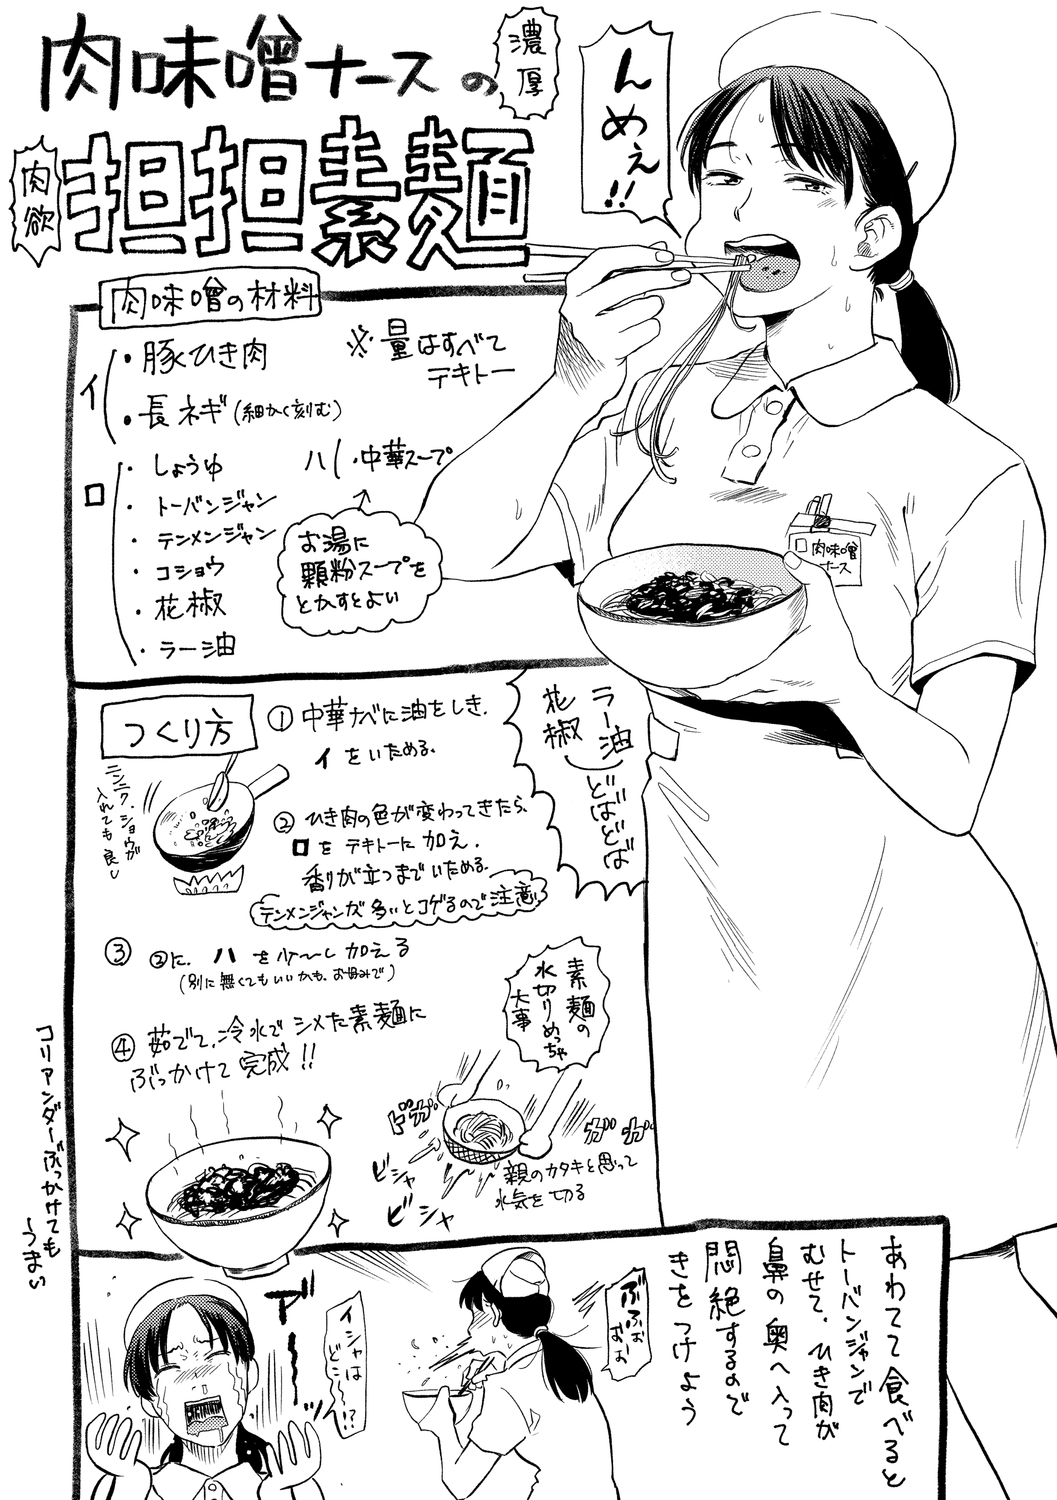 肉味噌ナースの
濃厚
肉欲
担担素麺
んめぇ!!
肉味噌の材料
イ
・豚ひき肉
・長ネギ(細かく刻む)
※量はすべて
テキトー
ロ
・しょうゆ
・トーバンジャン
・テンメンジャン
・コショウ
・花椒
・ラー油
ハ
・中華スープ
お湯に
顆粒スープを
とかすとよい
肉味噌
ナース
つくり方
①中華ナベに油をしき、
イをいためる。
ニンニク、ショウガ
入れても良し
②ひき肉の色が変わってきたら、
ロをテキトーに加え、
香りが立つまでいためる。
テンメンジャンが多いとコゲるので注意
ラー油
花椒
どばどば
③②に、ハを少〜し加える
(別に無くてもいいかも、お好みで)
④茹でて、冷水でシメた素麺に
ぶっかけて完成!!
素麺の
水切りめっちゃ
大事
ビシャ
ビシャ
親のカタキと思って
水気を切る
コリアンダーぶっかけても
うまい
あわてて食べると
トーバンジャンで
むせて、ひき肉が
鼻の奥へ入って
悶絶するので
きをつけよう
ぶふぉ
ぉーぉ
イシャは
どこ〜!?